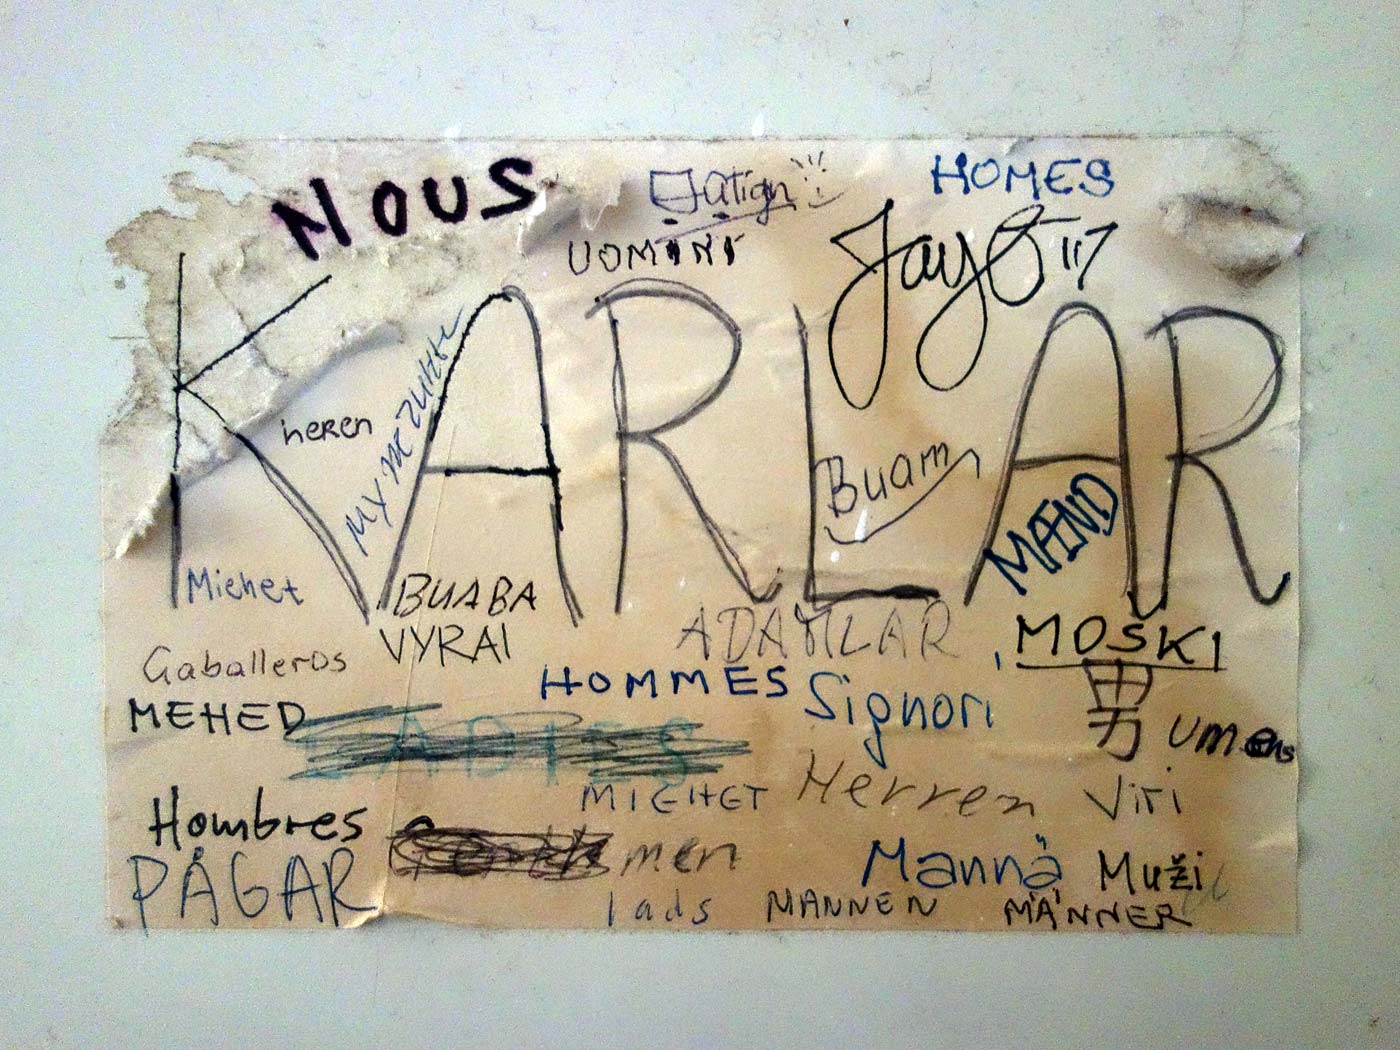 NOUS
HOMES
UOMINI
Jay
KARLAR
heren
Buam
MÆND
Miehet
BUABA
VYRAI
ADAMLAR
MOSKI
Gaballeros
HOMMES
Signori
男
MEHED
LADIES
umens
MIEHET
Herren
Viri
Hombres
men
Manna
Muži
PÁGAR
lads
MANNEN
MÄNNER